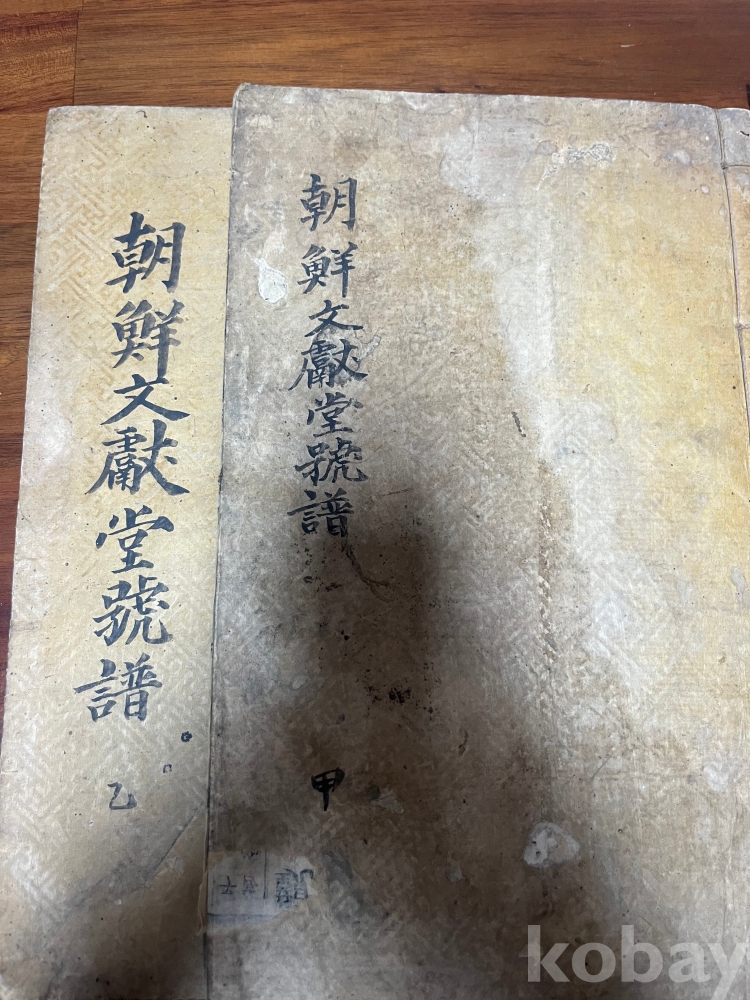 朝鮮文獻堂號譜
甲
朝鮮文獻堂號譜
乙
kobay